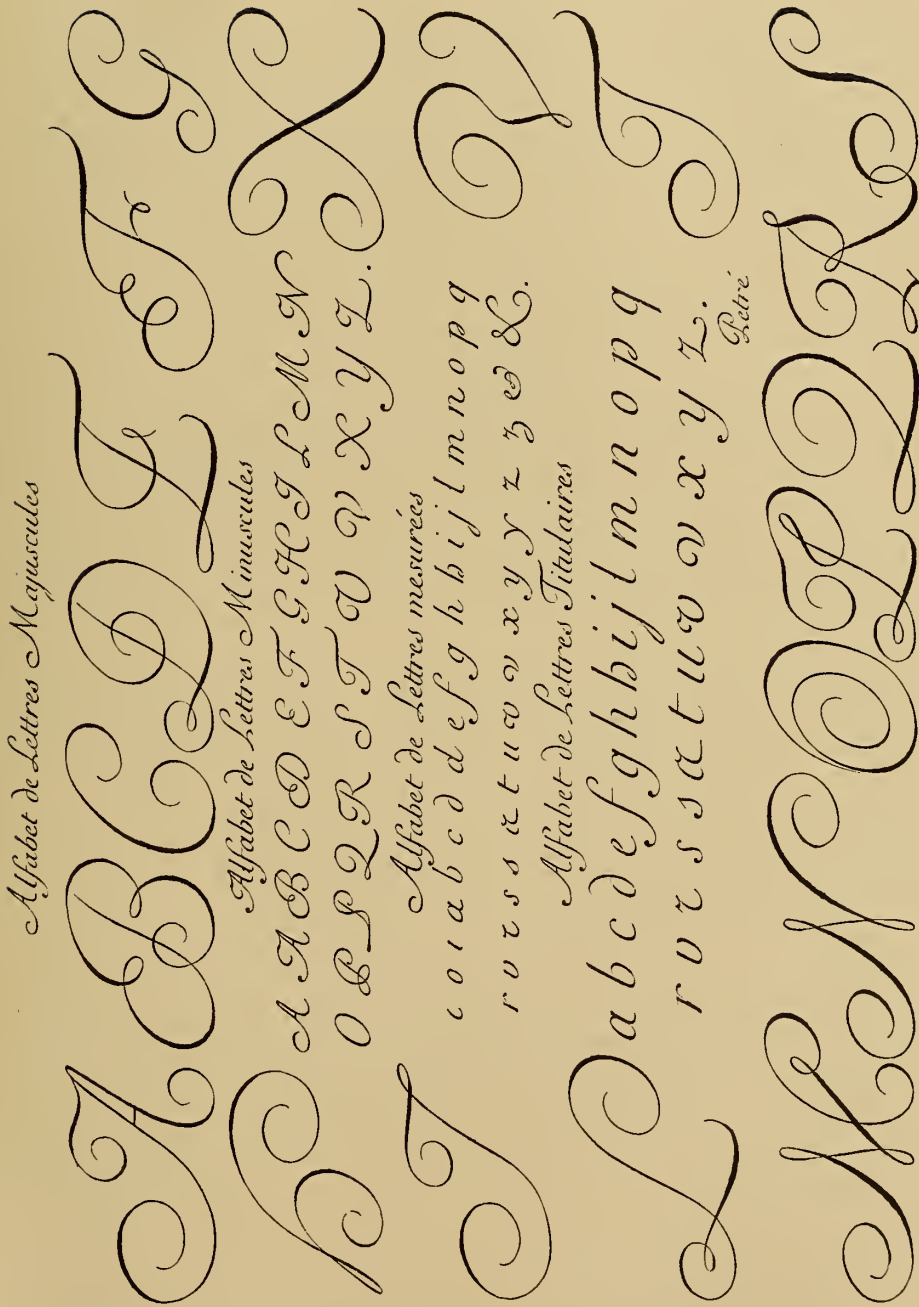 Alfabet de Lettres Majuscules
A B C D E F G
H
Alfabet de Lettres Minuscules
X
A A B C D E F G H I L M N
O P P Q R S T V V X Y Z.
I
Alfabet de Lettres mesurées
V
c o ı a b c d d e f g h h i j l m n o p q
r v r s s ct t u v v x y y z z & &.
L
Alfabet de Lettres Titulaires
T
a b c d e f g h h i j l m n o p q
r v r s s ct t u v v x y z.
Petré
M N O P Q R S